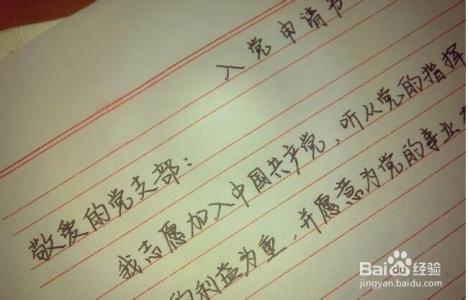 入党申请书
敬爱的党支部：
我志愿加入中国共产党，听从党的指挥
的利益为重，并愿意为党的事业
Baidu经验
jingyan.baidu.com